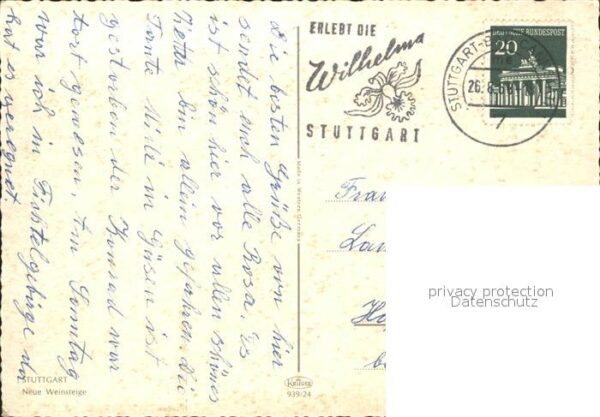 Die besten Grüße von hier
sendet euch alle Rosa. Es
ist schön hier vor allen schönes
Wetter bin allein gefahren. Die
Tante Mile in Güsen ist
gestorben der Konrad war
dort gewesen. Am Sonntag
war ich in Fichtelgebirge da
hat es geregnet.
ERLEBT DIE
Wilhelma
STUTTGART
STUTTGART-
26.8.
DEUTSCHE BUNDESPOST
20
Made in Western Germany
Frau
privacy protection
Datenschutz
STUTTGART
Neue Weinsteige
Krüger
939/24